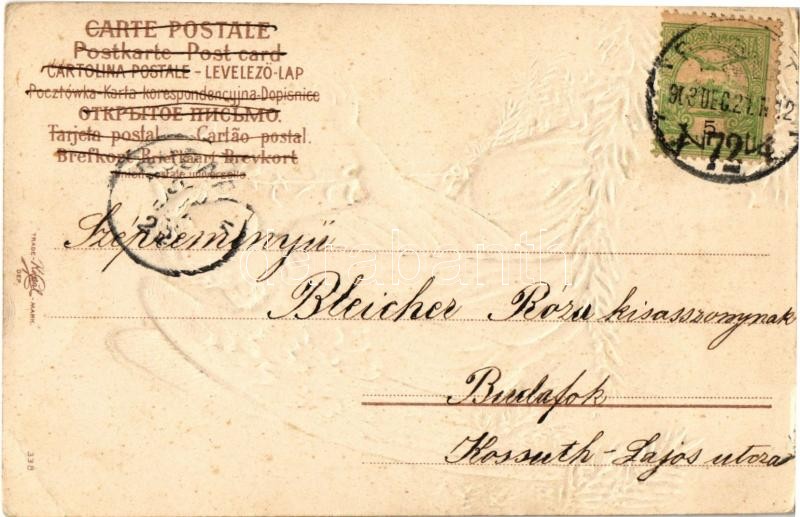 CARTE POSTALE
Postkarte-Post card
CARTOLINA POSTALE - LEVELEZŐ-LAP
Pocztówka-Karta korespondencyjna-Dopisnice
ОТКРЫТОЕ ПИСЬМО.
Tarjeta postal.-Cartão postal.
Brefkort-Briefkaart-Brevkort
Union postale universelle
TRADE-
-MARK.
DEP.
338
Szépteményű
Bleicher Róza kisasszonynak
Budafok
Kossuth-Lajos utcza
darabanth
5
72